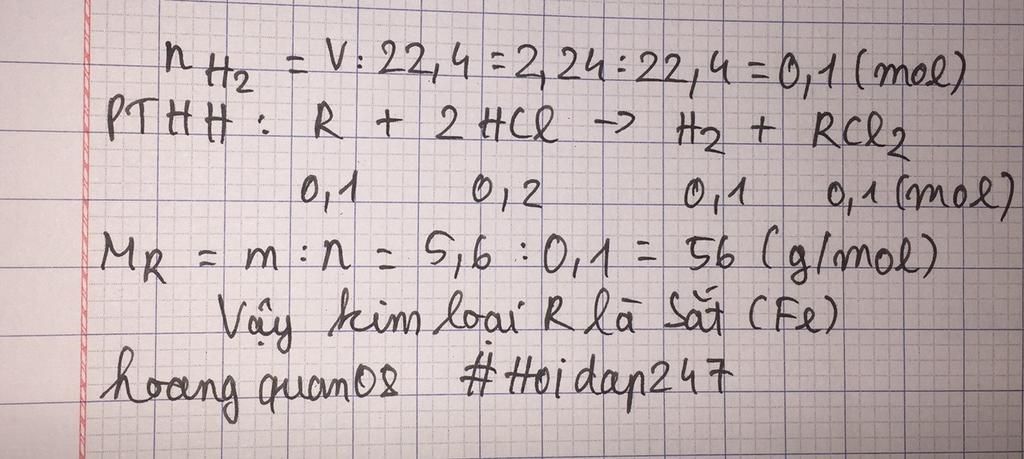 nH2 = V : 22,4 = 2,24 : 22,4 = 0,1 (mol)
PTHH : R + 2HCl -> H2 + RCl2
0,1 0,2 0,1 0,1 (mol)
MR = m : n = 5,6 : 0,1 = 56 (g/mol)
Vậy kim loại R là Sắt (Fe)
hoangquan08 #Hoidap247